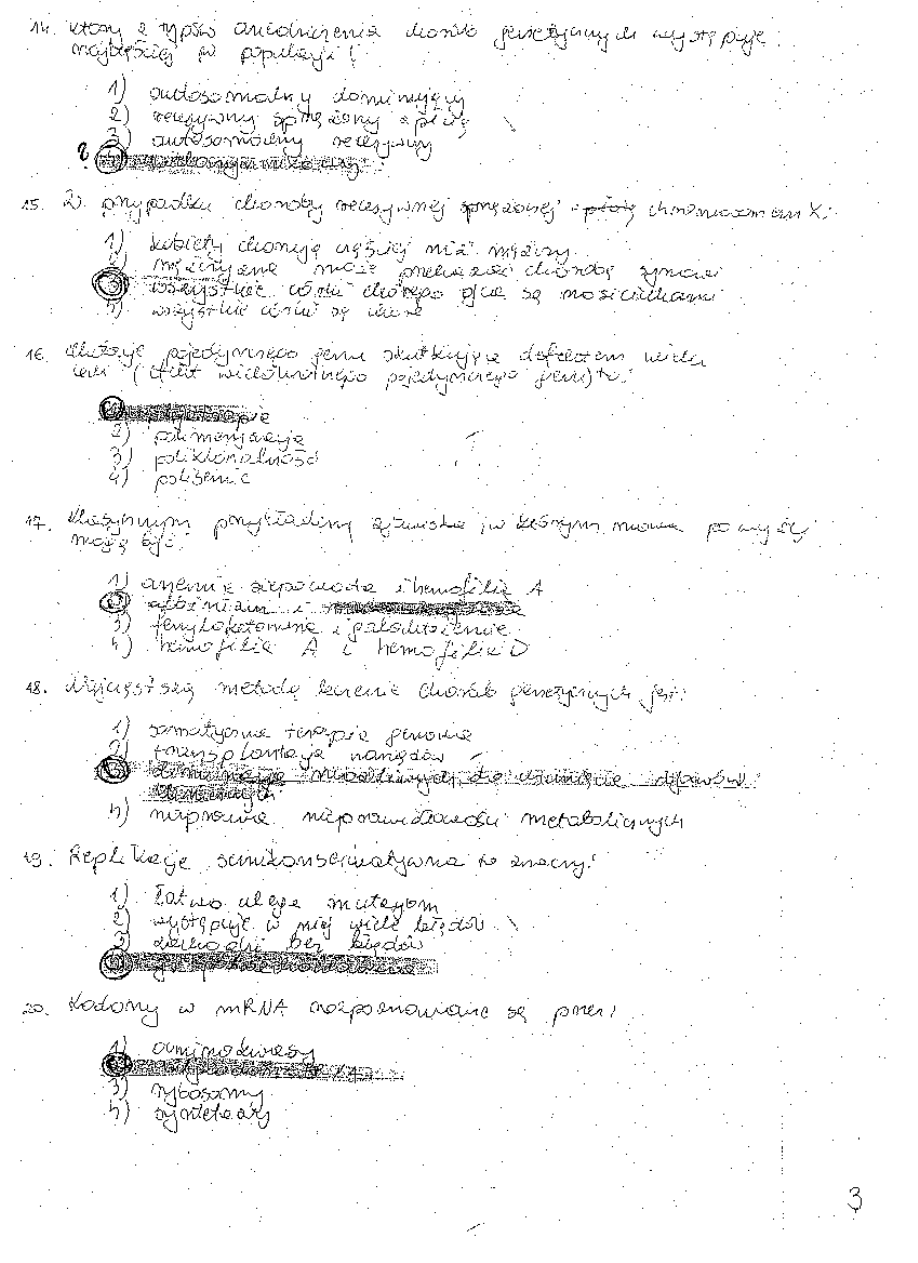 14. Który z typów dziedziczenia chorób genetycznych występuje
najczęściej w populacji?
1) autosomalny dominujący
2) recesywny sprzężony z płcią
3) autosomalny recesywny
?
15. W przypadku choroby recesywnej sprzężonej z płcią chromosomem X:
1) kobiety chorują częściej niż mężczyźni
2) mężczyzna może przekazać chorobę synowi
3) wszystkie córki chorego ojca są nosicielkami
4) wszystkie córki są chore
16. Mutacje pojedynczego genu skutkujące defektem wielu
cech (efekt wielokrotnego pojedynczego genu) to:
plejotropia
2) polimeryzacja
3) poliklonalność
4) poligenia
17. Klasycznym przykładem zjawiska, w którym mowa
mogą być:
1) anemia sierpowata i hemofilia A
albinizm i
3) fenyloketonuria i galaktozemia
4) hemofilia A i hemofilia D
18. Najczęstszą metodą leczenia chorób genetycznych jest:
1) somatyczna terapia genowa
2) transplantacja narządów
objawów
4) naprawa nieprawidłowości metabolicznych
19. Replikacja semikonserwatywna to znaczy:
1) łatwo ulega mutacjom
2) występuje w niej wiele błędów
3) zachodzi bez błędów
20. Kodony w mRNA rozpoznawane są przez:
1) aminokwasy
3) rybosomy
4) syntetazy
3